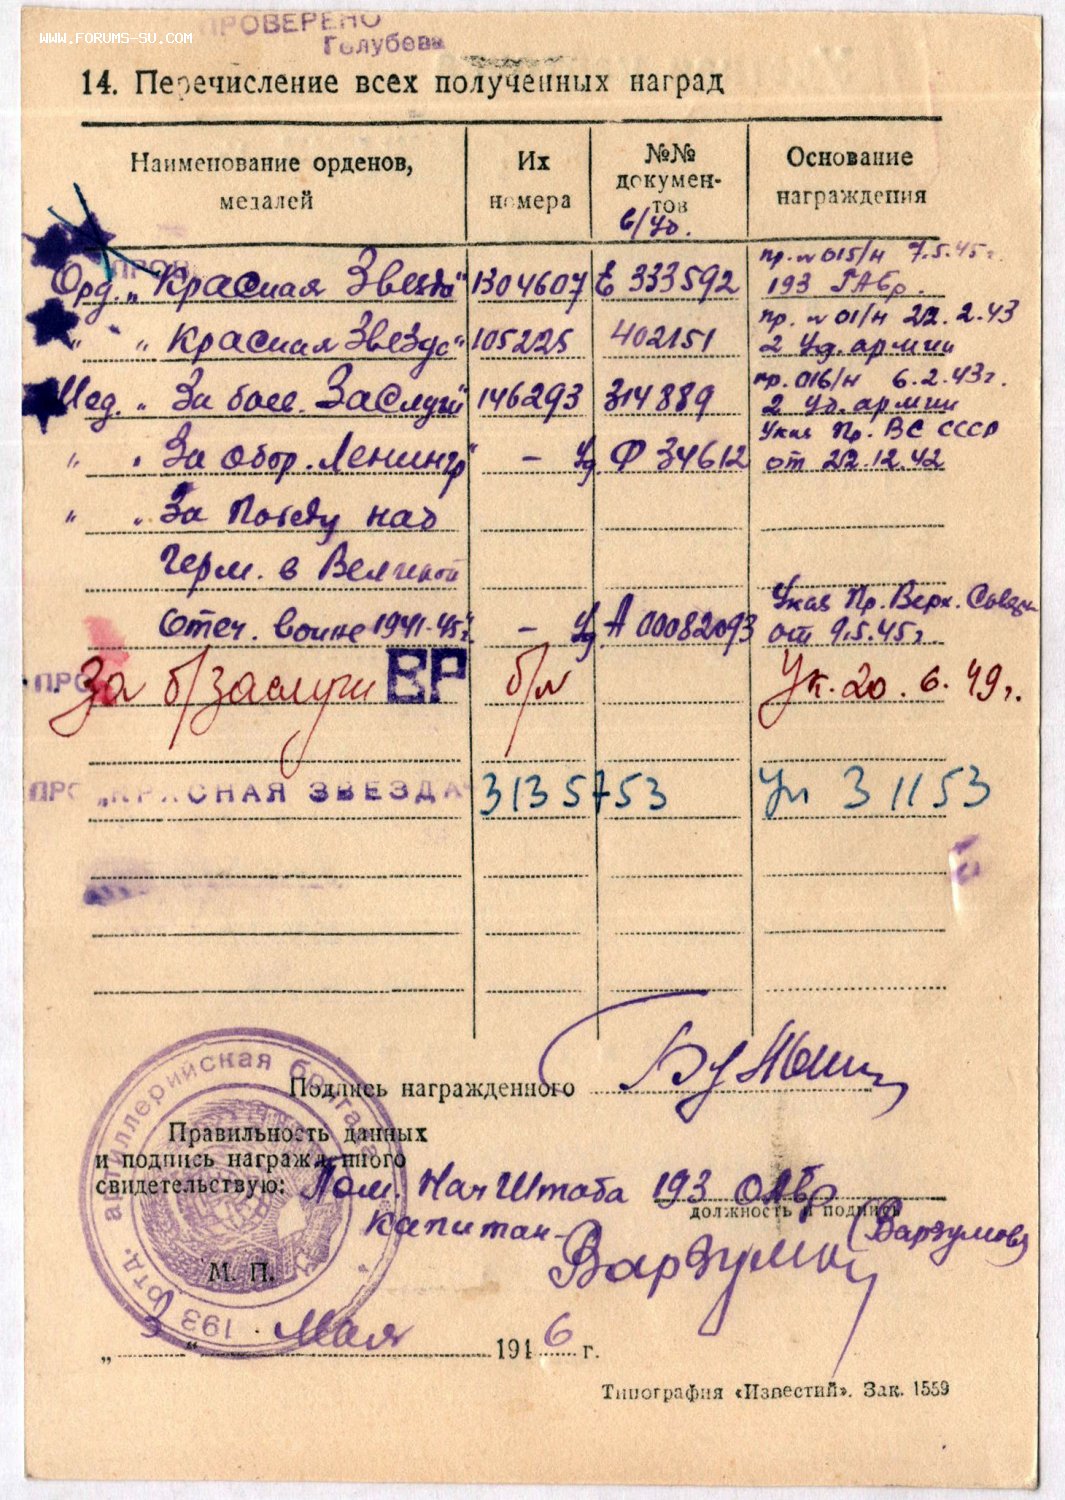 ПРОВЕРЕНО
WWW.FORUMS-SU.COM
Голубева
14. Перечисление всех полученных наград
Наименование орденов, медалей
Их номера
№№ документов
в/уд.
Основание награждения
ПРОВ
Орд. „Красная Звезда" 1304607 Е 333592 пр. № 015/н 7.5.45г. 193 ГАБр.
" „Красная Звезда" 105225 402151 пр. № 01/н 22.2.43 2 Уд. армии
Мед. „За боев. Заслуги" 146293 314889 пр. 016/н 6.2.43г. 2 Уд. армии
" „За обор. Ленингр" - Уд. Ф 34612 Указ Пр. ВС СССР от 22.12.42
" „За Победу над
Герм. в Великой
Отеч. воине 1941-45г." - Уд. А 00082093 Указ Пр. Верх. Совета от 9.5.45г
ПРО За б/заслуги ВР б/н Ук. 20.6.49г.
ПРО „КРАСНАЯ ЗВЕЗДА" 3135753 Ук 3 11 53
Подпись награжденного
Правильность данных
и подпись награжденного
свидетельствую: Пом. Нач Штаба 193 ОАБр
должность и подпись
капитан - (Варзумов)
артиллерийская бригада
193 отд.
М. П.
Мая 1946 г.
Типография «Известий». Зак. 1559